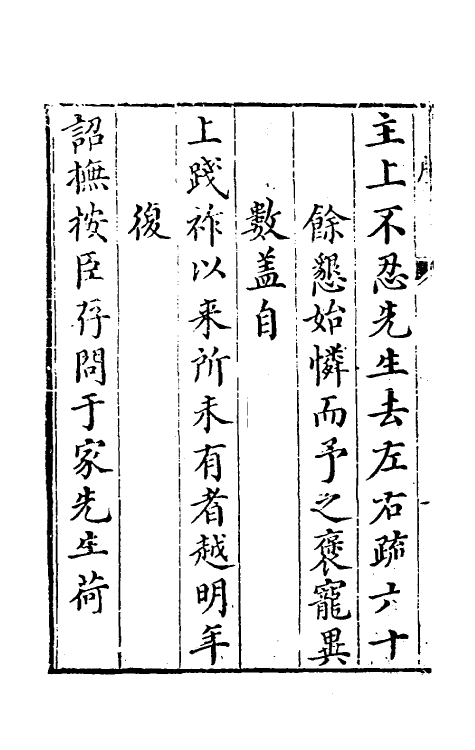 主上不忍先生去左右疏六十
餘懇始憐而予之褒寵異
數盖自
上踐祚以来所未有者越明年
復
詔撫按臣存問于家先生荷